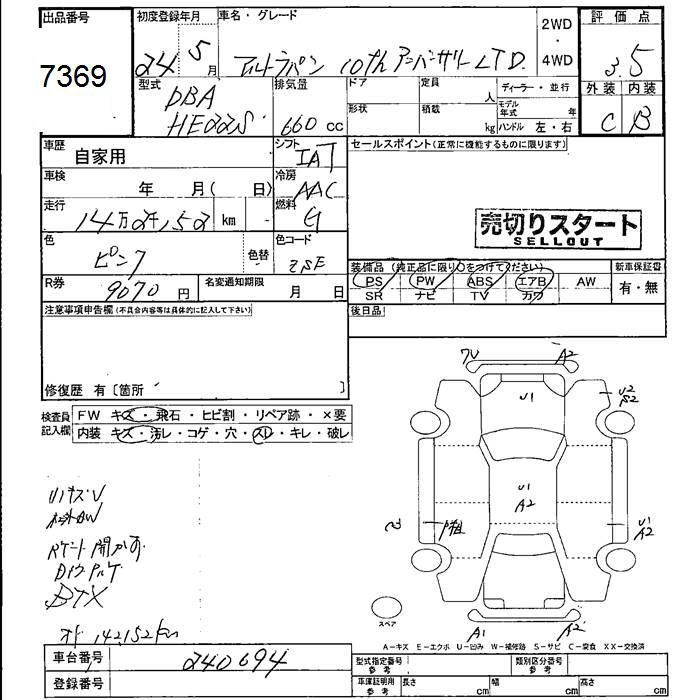 出品番号
7369
初度登録年月
24年5月
車名・グレード
アルトラパン 10thアニバーサリーLTD.
2WD
・
4WD
評価点
3.5
型式
DBA
HE22S
排気量
660 cc
ドア
形状
定員
人
積載
kg
ディーラー・並行
モデル年式 年
ハンドル 左・右
外装 内装
C B
車歴 自家用
シフト
IAT
セールスポイント(正常に機能するものに限ります)
車検 年 月( 日)
冷房
AAC
走行 14万2千152 km
燃料
G
売切りスタート
SELLOUT
色 ピンク
色替
色コード
ZSE
装備品(純正品に限り○をつけてください)
新車保証書
PS PW ABS エアB AW
有・無
SR ナビ TV カワ
R券 9070 円
名変通知期限 月 日
後日品
注意事項申告欄(不具合内容等は具体的に記入して下さい)
修復歴 有〔箇所 〕
検査員
記入欄
FW キズ・飛石・ヒビ割・リペア跡・×要
内装 キズ・汚レ・コゲ・穴・スレ・キレ・破レ
A2
U1
U2
S2
U1
A2
U1
A2
Rゲート開かず
オド 142,152km
A1
A2
スペア
A−キズ E−エクボ U−凹み W−補修跡 S−サビ C−腐食 XX−交換済
車台番号 240694
登録番号
型式指定番号
参考
類別区分番号
参考
車庫証明用
参考
長さ cm
幅 cm
高さ cm